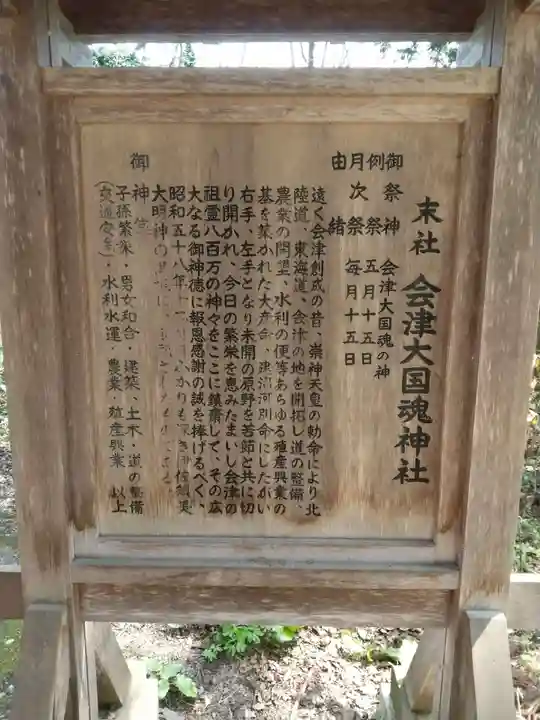 末社 会津大国魂神社
御祭神 会津大国魂の神
例祭 五月十五日
月次祭 毎月十五日
由緒
遠く会津創成の昔、崇神天皇の勅命により北
陸道、東海道、会津の地を開拓し道の整備、
農業の開墾、水利の便等あらゆる殖産興業の
基を築かれた大彦命、建沼河別命にしたがい
右手、左手となり未開の原野を苦節と共に切
り開かれ、今日の繁栄を恵みたまいし会津の
祖霊八百万の神々をここに鎮斎して、その広
大なる御神徳に報恩感謝の誠を捧げるべく、
昭和五十八年
大明神の
御神
子孫繁栄・男女和合・建築、土木・道の整備
(交通安全)・水利水運・農業・殖産興業 以上